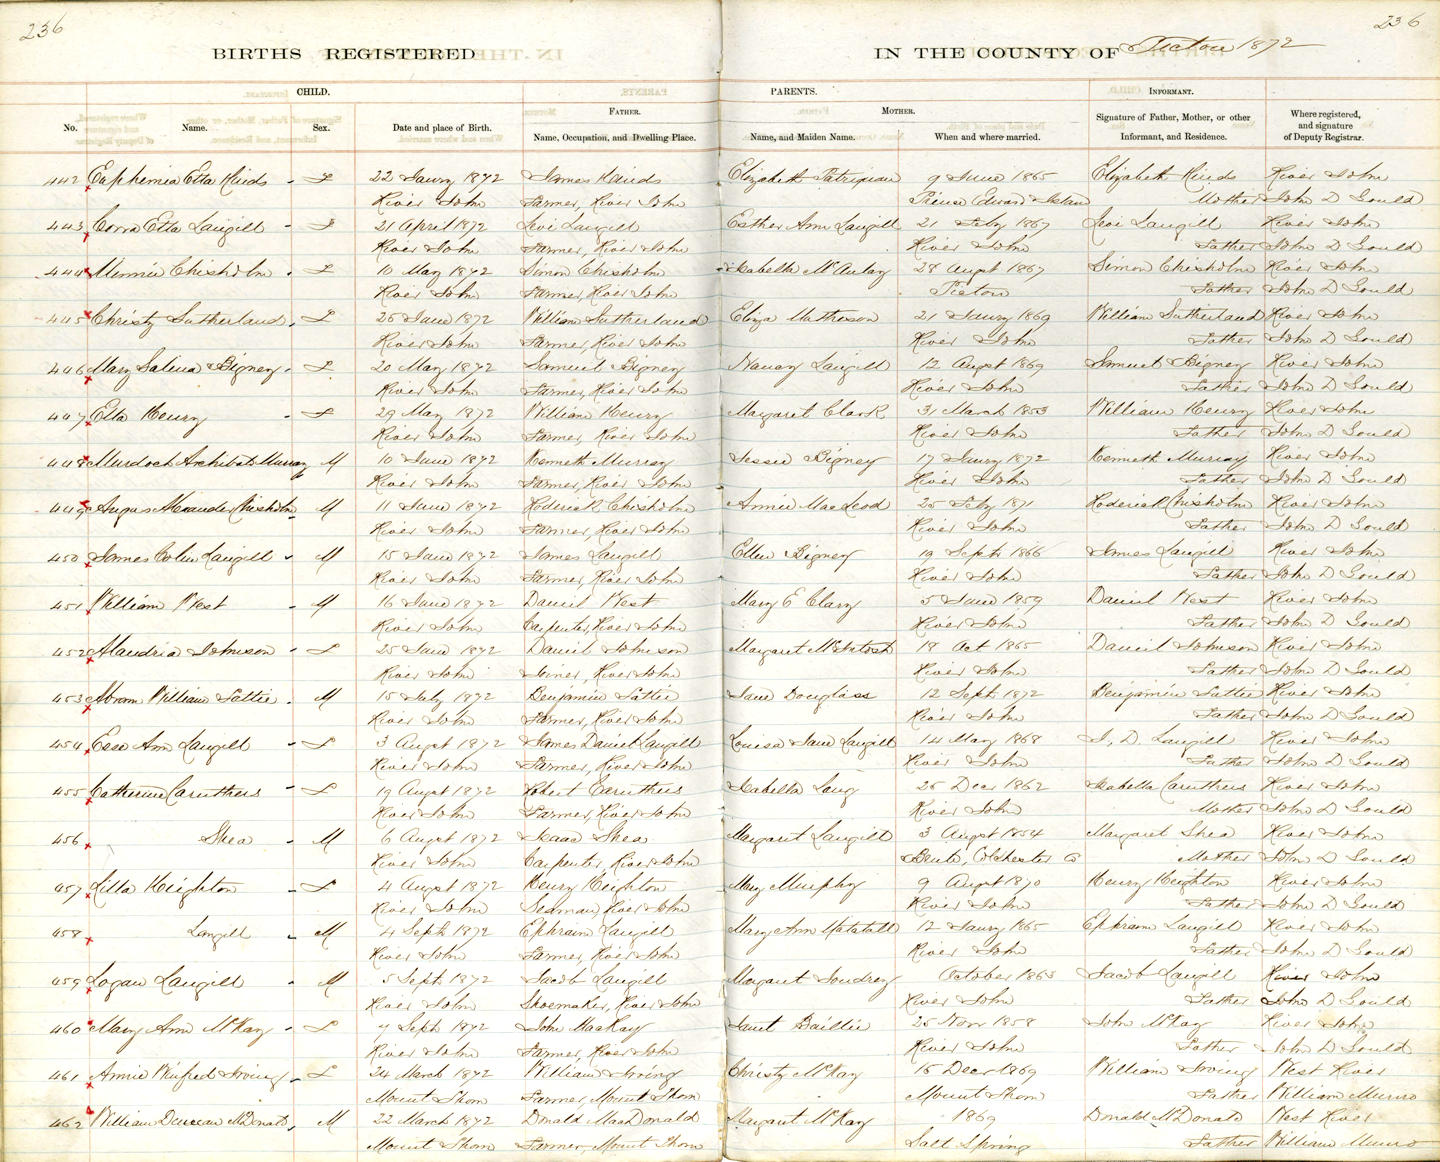 236
236
BIRTHS REGISTERED IN THE COUNTY OF Pictou 1872
CHILD. PARENTS. INFORMANT.
FATHER. MOTHER.
No. Name. Sex. Date and place of Birth. Name, Occupation, and Dwelling Place. Name, and Maiden Name. When and where married. Signature of Father, Mother, or other Informant, and Residence. Where registered, and signature of Deputy Registrar.
442 Euphemia Etta Hinds F 22 Jany 1872 James Hinds Elizabeth Patriquin 9 June 1865 Elizabeth Hinds River John
River John Farmer, River John Prince Edward Island Mother John D Gould
443 Corra Etta Langill F 21 April 1872 Levi Langill Esther Ann Langill 21 Feby 1867 Levi Langill River John
River John Farmer, River John River John Father John D Gould
444 Minnie Chisholm F 10 May 1872 Simon Chisholm Isabella McAulay 28 Augst 1867 Simon Chisholm River John
River John Farmer, River John Pictou Father John D Gould
445 Christy Sutherland F 26 June 1872 William Sutherland Eliza Matheson 21 Jany 1869 William Sutherland River John
River John Farmer, River John River John Father John D Gould
446 Mary Salina Bigney F 20 May 1872 Samuel Bigney Nancy Langill 12 Augst 1869 Samuel Bigney River John
River John Farmer, River John River John Father John D Gould
447 Etta Henry F 29 May 1872 William Henry Margaret Clark 31 March 1853 William Henry River John
River John Farmer, River John River John Father John D Gould
448 Murdoch Archibald Murray M 10 June 1872 Kenneth Murray Jessie Bigney 17 Jany 1872 Kenneth Murray River John
River John Farmer, River John River John Father John D Gould
449 Angus Alexander Chisholm M 11 June 1872 Roderick Chisholm Annie MacLeod 25 Feby 1871 Roderick Chisholm River John
River John Farmer, River John River John Father John D Gould
450 James Colin Langill M 15 June 1872 James Langill Ellen Bigney 19 Sept 1866 James Langill River John
River John Farmer, River John River John Father John D Gould
451 William West M 16 June 1872 Daniel West Mary E Clary 5 June 1859 Daniel West River John
River John Carpenter, River John River John Father John D Gould
452 Alandria Johnson F 25 June 1872 Daniel Johnson Margaret McIntosh 18 Oct 1865 Daniel Johnson River John
River John Joiner, River John River John Father John D Gould
453 Abram William Tattrie M 15 July 1872 Benjamin Tattrie Jane Douglass 12 Sept 1872 Benjamin Tattrie River John
River John Farmer, River John River John Father John D Gould
454 Ann Langill F 3 Augst 1872 James Daniel Langill Louisa Jane Langill 14 May 1868 J. D. Langill River John
River John Farmer, River John River John Father John D Gould
455 Catherine Caruthers F 19 Augst 1872 Robert Caruthers Isabella Long 25 Decr 1862 Isabella Caruthers River John
River John Farmer, River John River John Mother John D Gould
456 Shea M 6 Augst 1872 Isaac Shea Margaret Langill 3 Augst 1854 Margaret Shea River John
River John Carpenter, River John Colchester Co Mother John D Gould
457 Lilla Heighton F 4 Augst 1872 Henry Heighton Mary Murphy 9 Augst 1870 Henry Heighton River John
River John Seaman, River John River John Father John D Gould
458 Langill M 4 Sept 1872 Ephraim Langill Mary Ann Matatall 12 Jany 1865 Ephraim Langill River John
River John Farmer, River John River John Father John D Gould
459 Logan Langill M 5 Sept 1872 Jacob Langill Margaret October 1863 Jacob Langill River John
River John Shoemaker, River John River John Father John D Gould
460 Mary Ann McKay F 7 Sept 1872 John MacKay Janet Baillie 25 Novr 1858 John McKay River John
River John Farmer, River John River John Father John D Gould
461 Annie Winifred Irving F 24 March 1872 William Irving Christy McKay 15 Decr 1869 William Irving West River
Mount Thom Farmer, Mount Thom Mount Thom Father William Munro
462 William Duncan McDonald M 22 March 1872 Donald MacDonald Margaret McKay 1869 Donald McDonald West River
Mount Thom Farmer, Mount Thom Salt Spring Father William Munro